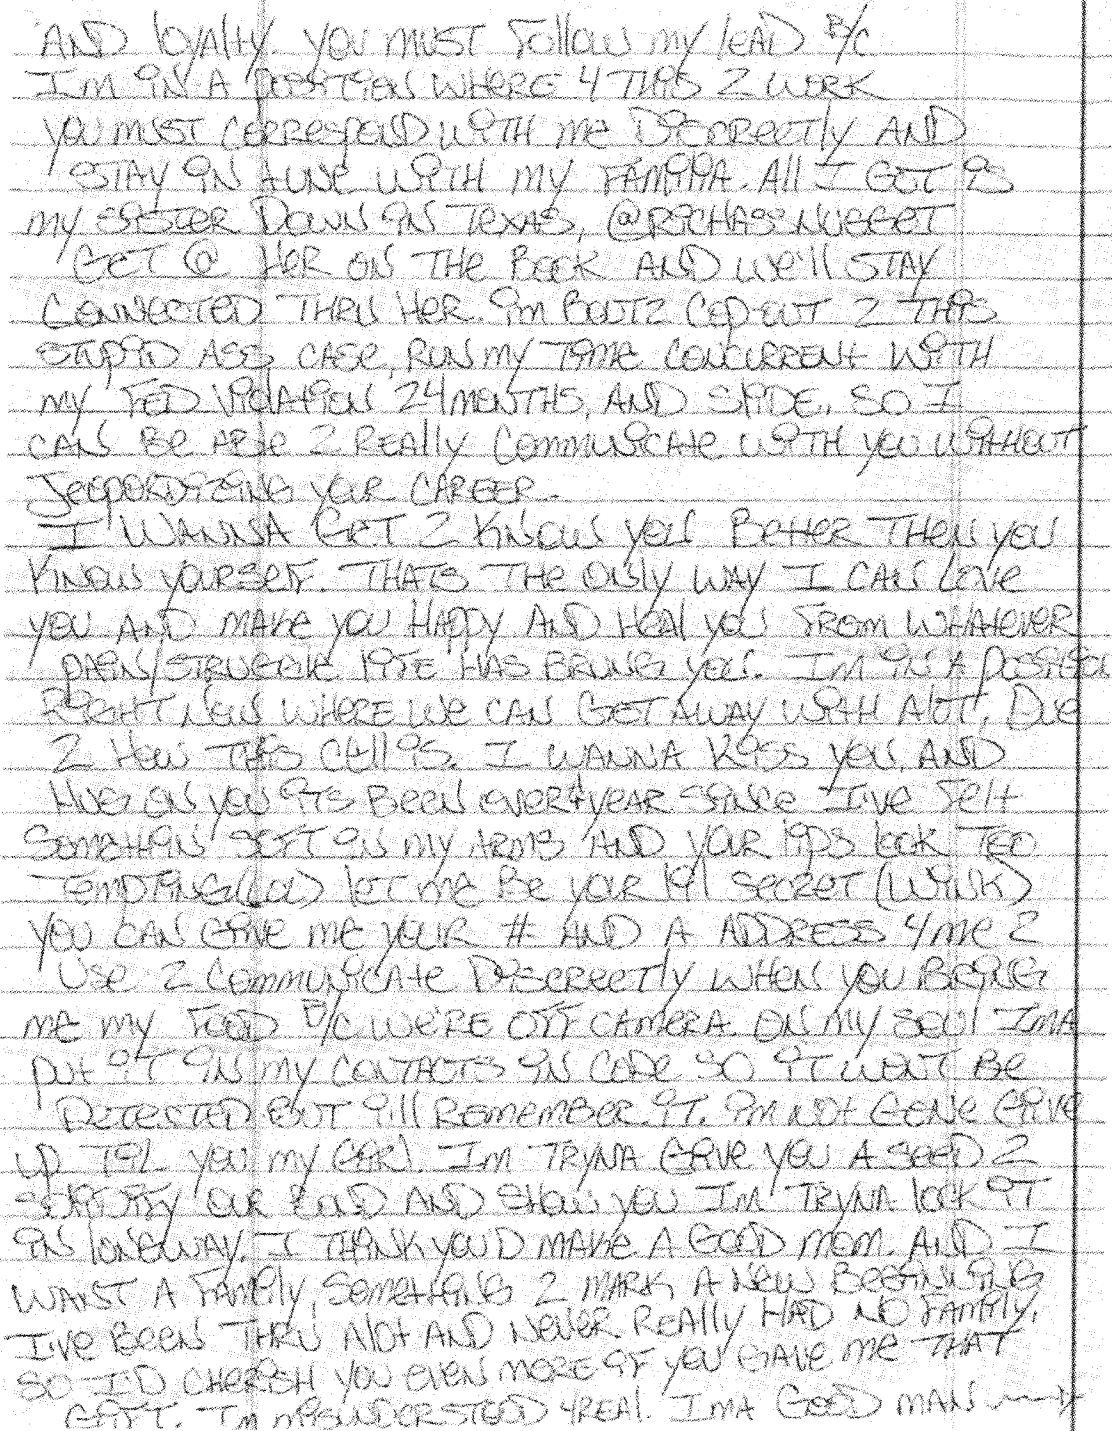 AND loyAlty. you must Follow my leAD B/C
I'm iN A positioN WHERE 4 THis 2 WORK
you must CorrespoND WiTH me DiscreetLy AND
STAY iN tuNe WiTH my FAmiliA. All I GOT is
my SiSTER DowN iN TexAs, @RICHASSNUGGET
GET @ HeR ON THe Book AND we'll STAY
CoNNECTeD THRU HeR. i'm Bout2 Cop-out 2 THis
STUpiD Ass CAse, RUN my Time CoNCURReNt WiTH
my FED VIolAtioN 24 moNTHs, AND sliDe. SO I
CAN Be ABle 2 ReAlly CommuNiCAte WiTH you WiTHouT
JeopoRDiziNG youR CAReeR.
I WANNA GeT 2 KNow you BetteR THeN you
KNow youRself. THATs THe oNly WAY I CAN Love
you AND mAke you HAppy AND HeAl you FRom WHAteveR
pAiN/sTRUGGle liFe HAs BRUNG you. I'm iN A positioN
RiGHT Now WHeRe we CAN GeT AWAY WiTH Alot, Due
2 How THis Cell is. I WANNA Kiss you AND
HuG oN you it's BeeN oveR A yeAR siNce I've Felt
SomethiN SoFT iN my ARms AND youR lips look Too
TempTiNG (lol) leT me Be youR lil secReT (WiNK)
you CAN Give me youR # AND A ADDRess 4 me 2
Use 2 CommuNiCAte DiscReetly WHeN you BRiNG
me my FooD B/C we'Re oFF CAmeRA. ON my soul ImA
put iT iN my CoNTACTs iN CoDe so iT woN't Be
DetesteD BuT i'll RemembeR iT. i'm Not GoNe Give
up Til you my GiRl. I'm TRyNA Give you A seeD 2
soliDiFy ouR BoND AND SHow you I'm TRyNA lock iT
iN loNGWAy. I THiNK you'D mAke A GooD mom. AND I
WANT A FAmily, SomethiNG 2 mARK A New BeGiNNiNG
I've BeeN THRU Alot AND NeveR ReAlly HAD NO FAmily.
SO I'D CHeRisH you eveN moRe iF you GAve me THAT
GiFT. I'm misuNDeRstooD 4ReAl. ImA GooD mAN